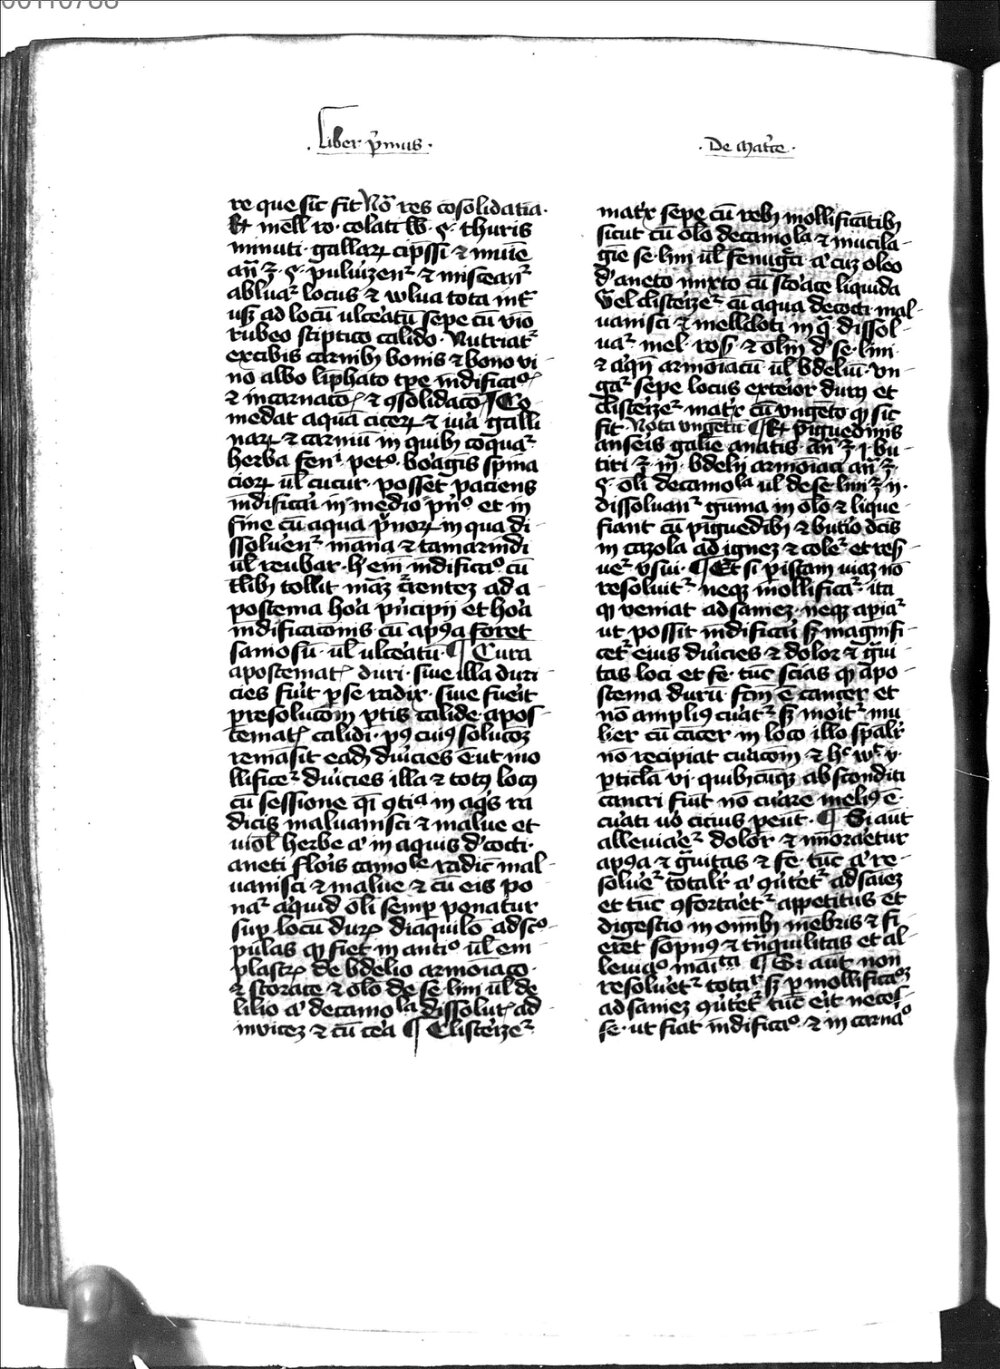 00110788
Liber p̄mus.
De mat̄ce.
re que sic fit Nō res cōsolidatīa.
℞ mell ro. colati lb. ʒ. thuris
minuti. gallaꝝ cip̄ssi ⁊ mūie
an̄ ℥. ʒ. puluīzenͬ ⁊ misceanͬ
abluaͬ locus ⁊ wlua tota int̄
usꝫ ad locū ulc̄atū sepe cū vīo
rubeo stiptico calido. Nutriatͬ
ex cibis carnibꝫ bonis ⁊ bono vi
no albo līphato tꝑe m̄dificatͦꝭ
⁊ incarnatōꝭ ⁊ ꝯsolidacō ¶ Co
medat aquā ciceꝝ ⁊ iura galli
naꝝ ⁊ carniū in quibꝫ coquaͬ
herba feni. petͦ. boragīs spina
cioꝝ ul̄ cucur. posset paciens
m̄dificari in medio pͥnͦ et in
fine cū aqua pͥnoꝝ in qua di-
ssoluenͬ māna ⁊ tamarindi
ul̄ reubar. h̄ em̄ m̄dificatͦ cū
tlibꝫ tollit māꝫ c̄rentez ad a
postema hora pͥncipij et hora
m̄dificacōnis cū apꝯa foret
saniosū ul̄ ulceatū. ¶ Cura
apostematꝭ duri. siue illa duri
cies fuit ꝑ se radix. siue fueīt
ꝑ resolucōm ꝑtis calide. apos-
tematꝭ calidi. pꝯ cuiꝯ solucōꝫ
remāsit eadꝫ duricies Eut mo
llificeͬ duricies illa ⁊ totꝯ locꝯ
cū sessione qi ꝯtiͣ in aqͥs ra
dicis maluauisci ⁊ malue et
uiol herbe aͥ in aquis dͨocti.
aneti floris camoͥˡᵉ radic̄ mal-
uauisci ⁊ malue ⁊ cū eis po
naͬ aliquid oli semꝑ ponatur
suꝑ locū duꝝ diaquilō adscͦ-
pulas qꝫ fiet in antiͦ. ul̄ em
plastꝝ de bdelio armoīaco.
⁊ storace ⁊ olo de se. lini ul̄ de
lilio aͥ de camoˡᵃ dissolutꝭ ad
inuicez ⁊ cū cera ¶ Clisteizeͬ
mat̄x sepe cū rebꝫ mollificātibꝫ
sicut cū olo de camoˡᵃ ⁊ mucila-
gīe se. lini ul̄ fenugc̄i aͥ cuꝫ oleo
dͤ aneto mixto cū storace liquida
Vel clisteizeͬ cū aqua decocti mal-
uauisci ⁊ melliloti in qͣ dissol-
uaͬ mel. rosꝫ ⁊ olm̄ dͤ se. lini.
⁊ aͥqn̄ armoīacū ul̄ bdeliū. vn-
gaͬ sepe locus exteior durꝯ et
clisteizeͬ mat̄x cū vngēto qꝫ sic
fit. Nota vngētū ¶ ℞ pͥguedīnis
anseis galie anatis. an̄ ℥ j. bu-
tiri ℥ iij. bdelij armoīaci an̄ ℥
ʒ. oli de camoˡᵃ ul̄ de se. lini ℥ ij.
dissoluanͬ gūma in olo ⁊ lique-
fiant cū pͥguedibꝫ ⁊ butiro dcīs
in cazola ad ignez ⁊ coleͬ. et resꝫ
ueͬ vsui. ¶ Et si ꝑ istam viaz nō
resoluitͬ. neqꝫ mollificaͬ. ita
qꝫ veniat ad saniez. neqꝫ apiaͬ
ut possit m̄dificari sꝫ magnifi-
cetͬ eius duricies ⁊ dolor ⁊ gͣui
tas loci et fe. tūc scias qꝫ apo
stema durū fcm̄ ē cancer et
nō ampliꝯ curatͬ sꝫ moritͬ mu
lier cū cācer in loco illo spalit̄
nō recipiat curacōm. ⁊ hͨ wlͭ y.
ꝑticla vi. quibꝯcūqꝫ absconditi
cancri fiūt nō curare meliꝯ ē.
curati uō cicius ꝑeūt. ¶ Si aūt
alleuiaeͬ dolor ⁊ m̄oraetur
apꝯa ⁊ gͣuitas ⁊ fe. tūc aͥ re-
solueͬ totalit̄ aͥ ꝯuertetͬ ad saīez
et tūc ꝯfortaetͬ appetitus et
digestio in om̄ibꝫ mēbris ⁊ fi
eret sōpnꝯ ⁊ tn̄quilitas et al-
leuiagͦ māiᵗᵃ. ¶ Si aūt non
resoluetͬ totaͬ. sꝫ ꝑ mollificacōꝫ
ad saniez ꝯuertetͬ tūc erit neces-
se. ut fiat m̄dificatͦ. ⁊ incarnaͦ